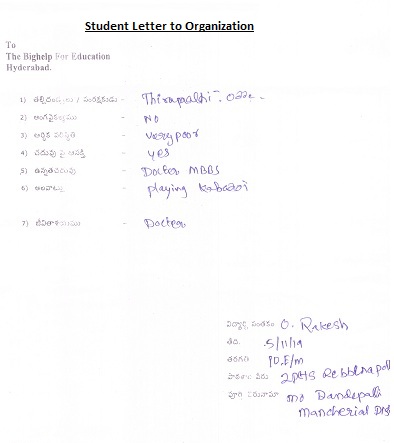 Student Letter to Organization
To
The Bighelp For Education
Hyderabad.
1) తల్లిదండ్రులు / సంరక్షకుడు - Thirupathi -
2) అంగవైకల్యము - NO
3) ఆర్థిక పరిస్థితి - very poor
4) చదువు పై ఆసక్తి - yes
5) ఉన్నతచదువు - Docter MBBS
6) అలవాట్లు - playing Kabaddi
7) జీవితాశయము - Docter
విద్యార్థి సంతకం O. Rakesh
తేది. 5/11/19
తరగతి 10, E/m
పాఠశాల పేరు ZPHS Rebbenapalli
పూర్తి చిరునామా mo Dandepalli
Mancherial Dist